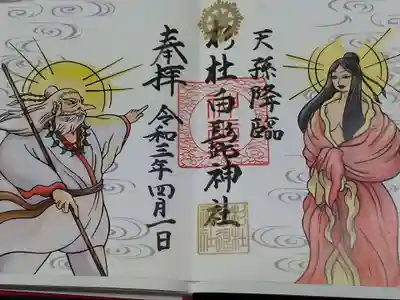 天孫降臨
杉杜白髭神社
奉拝 令和三年四月一日